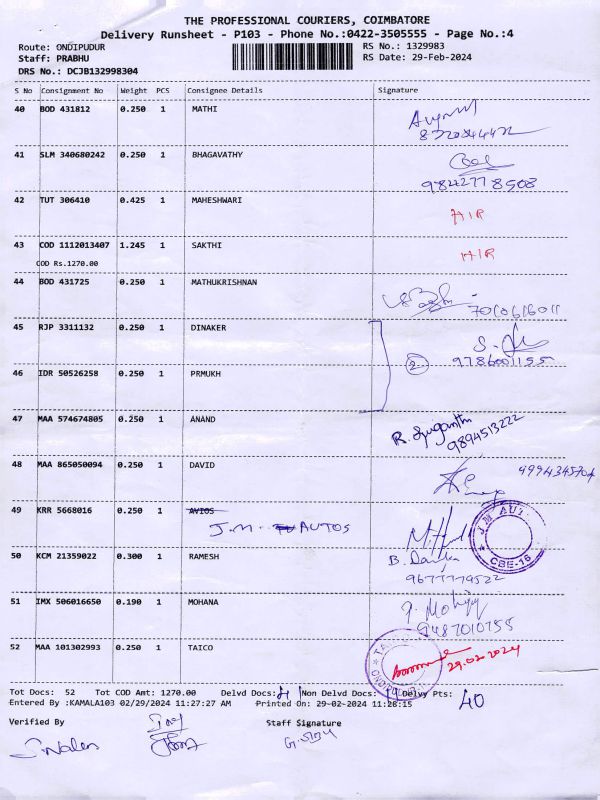 THE PROFESSIONAL COURIERS, COIMBATORE
Delivery Runsheet - P103 - Phone No.:0422-3505555 - Page No.:4
Route: ONDIPUDUR RS No.: 1329983
Staff: PRABHU RS Date: 29-Feb-2024
DRS No.: DCJB132998304
S No Consignment No Weight PCS Consignee Details Signature
40 BOD 431812 0.250 1 MATHI
41 SLM 340680242 0.250 1 BHAGAVATHY
9842778508
42 TUT 306410 0.425 1 MAHESHWARI
43 COD 1112013407 1.245 1 SAKTHI
COD Rs.1270.00
44 BOD 431725 0.250 1 MATHUKRISHNAN
7010616011
45 RJP 3311132 0.250 1 DINAKER
9786001155
2
46 IDR 50526258 0.250 1 PRMUKH
47 MAA 574674805 0.250 1 ANAND
9894513222
48 MAA 865050094 0.250 1 DAVID
49 KRR 5668016 0.250 1 AVIOS
J.M. AUTOS
J.M AUT
CBE-16
50 KCM 21359022 0.300 1 RAMESH
9677779522
51 IMX 506016650 0.190 1 MOHANA
9487010755
52 MAA 101302993 0.250 1 TAICO
29.02.2024
Tot Docs: 52 Tot COD Amt: 1270.00 Delvd Docs: Non Delvd Docs: Delvy Pts: 40
Entered By :KAMALA103 02/29/2024 11:27:27 AM Printed On: 29-02-2024 11:28:15
Verified By Staff Signature